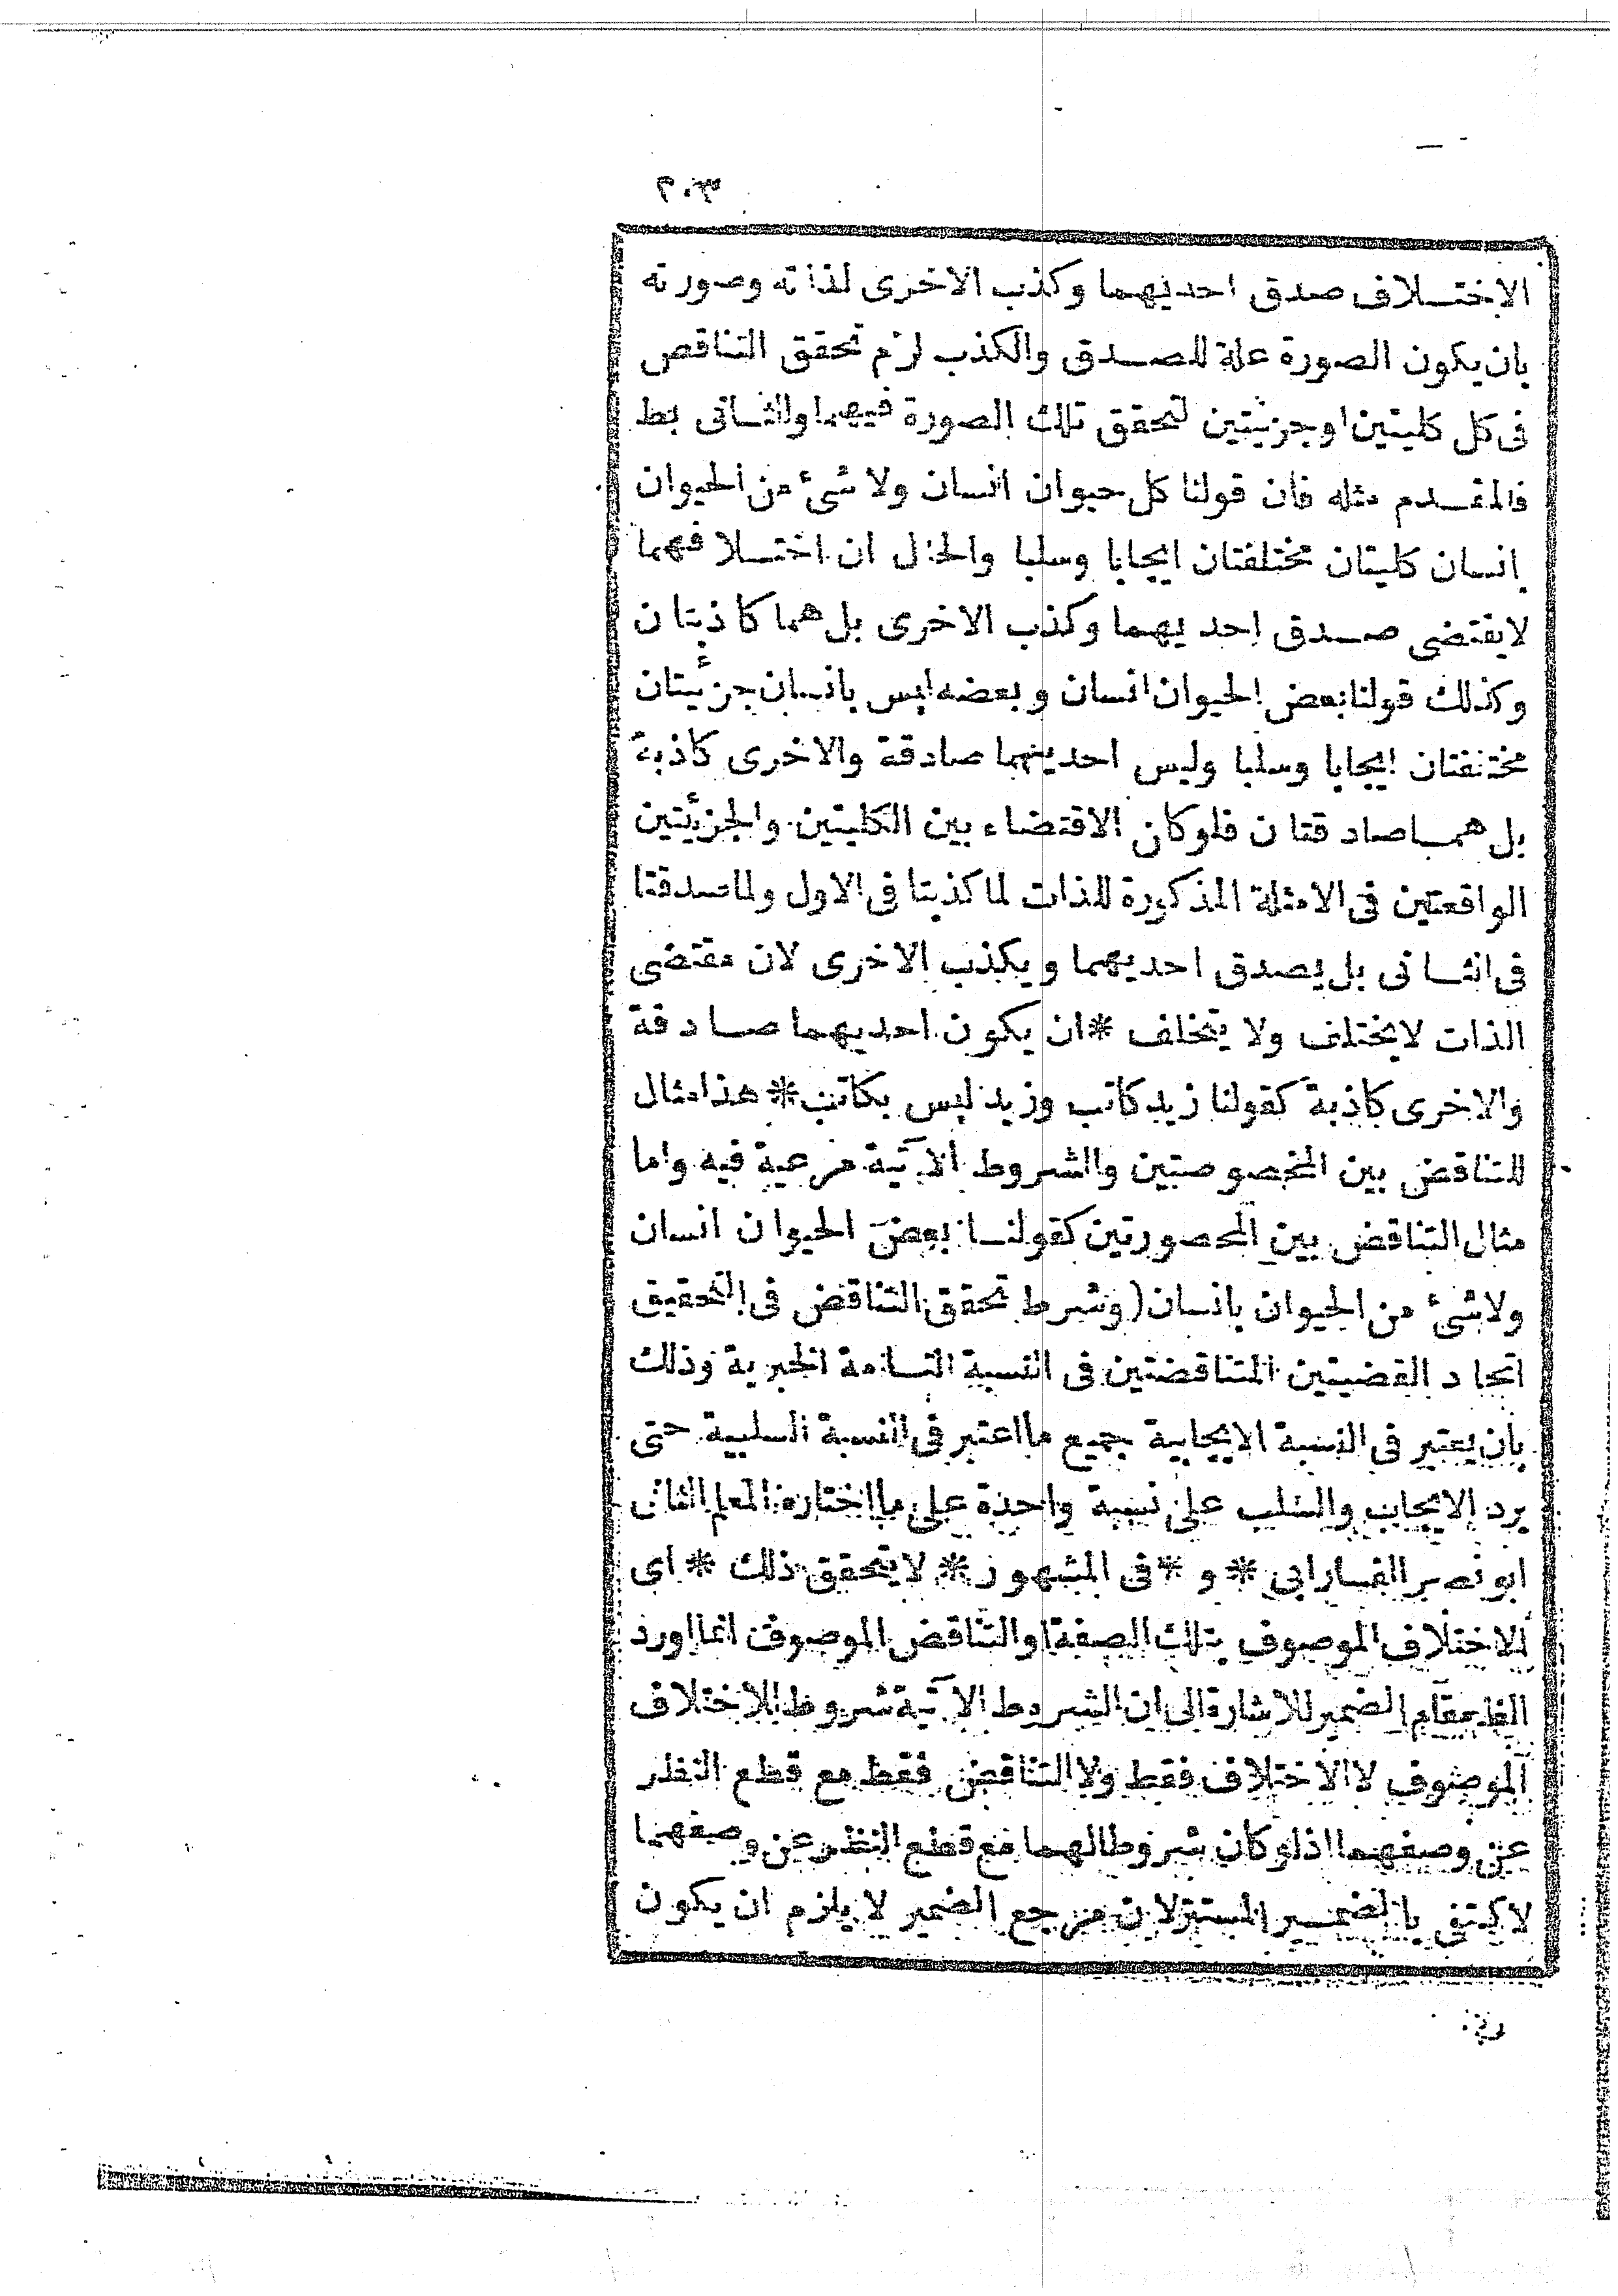 ٢٠٣
الاختلاف صدق احديهما وكذب الاخرى لذاته وصورته
بان يكون الصورة علة للصدق والكذب لزم تحقق التناقض
فى كل كليتين او جزئيتين لتحقق تلك الصورة فيهما والثانى بط
فالمقدم مثله فان قولنا كل حيوان انسان ولا شئ من الحيوان
بانسان كليتان مختلفتان ايجابا وسلبا والحال ان اختلافهما
لا يقتضى صدق احديهما وكذب الاخرى بل هما كاذبتان
وكذلك قولنا بعض الحيوان انسان وبعضه ليس بانسان جزئيتان
مختلفتان ايجابا وسلبا وليس احديهما صادقة والاخرى كاذبة
بل هما صادقتان فلو كان الاقتضاء بين الكليتين والجزئيتين
الواقعتين فى الامثلة المذكورة للذات لما كذبتا فى الاول ولما صدقتا
فى الثانى بل يصدق احديهما ويكذب الاخرى لان مقتضى
الذات لا يختلف ولا يتخلف * ان يكون احديهما صادقة
والاخرى كاذبة كقولنا زيد كاتب وزيد ليس بكاتب * هذا مثال
للتناقض بين المخصوصتين والشروط الآتية مرعية فيه واما
مثال التناقض بين المحصورتين كقولنا بعض الحيوان انسان
ولا شئ من الحيوان بانسان (وشرط تحقق التناقض فى التحقيق
اتحاد القضيتين المتناقضتين فى النسبة التامة الخبرية وذلك
بان يعتبر فى النسبة الايجابية جميع ما اعتبر فى النسبة السلبية حتى
يرد الايجاب والسلب على نسبة واحدة على ما اختاره المعلم الثانى
ابو نصر الفارابى * و * فى المشهور * لا يتحقق ذلك * اى
الاختلاف الموصوف بتلك الصفة او التناقض الموصوف انما اورد
الظ مقام الضمير للاشارة الى ان الشروط الآتية شروط للاختلاف
الموصوف لا الاختلاف فقط ولا التناقض فقط مع قطع النظر
عن وصفهما اذ لو كان شروطا لهما مع قطع النظر عن وصفهما
لا كتفى بالضمير المستتر لان مرجع الضمير لا يلزم ان يكون